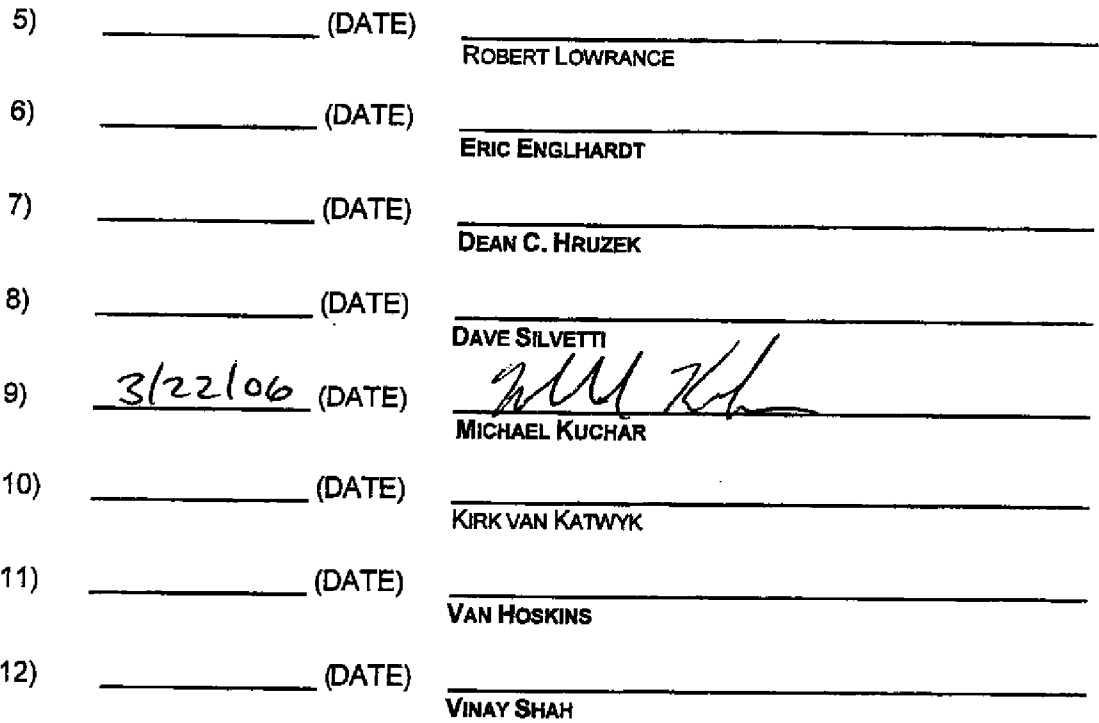 5) (DATE)
ROBERT LOWRANCE
6) (DATE)
ERIC ENGLHARDT
7) (DATE)
DEAN C. HRUZEK
8) (DATE)
DAVE SILVETTI
9) 3/22/06 (DATE)
MICHAEL KUCHAR
10) (DATE)
KIRK VAN KATWYK
11) (DATE)
VAN HOSKINS
12) (DATE)
VINAY SHAH